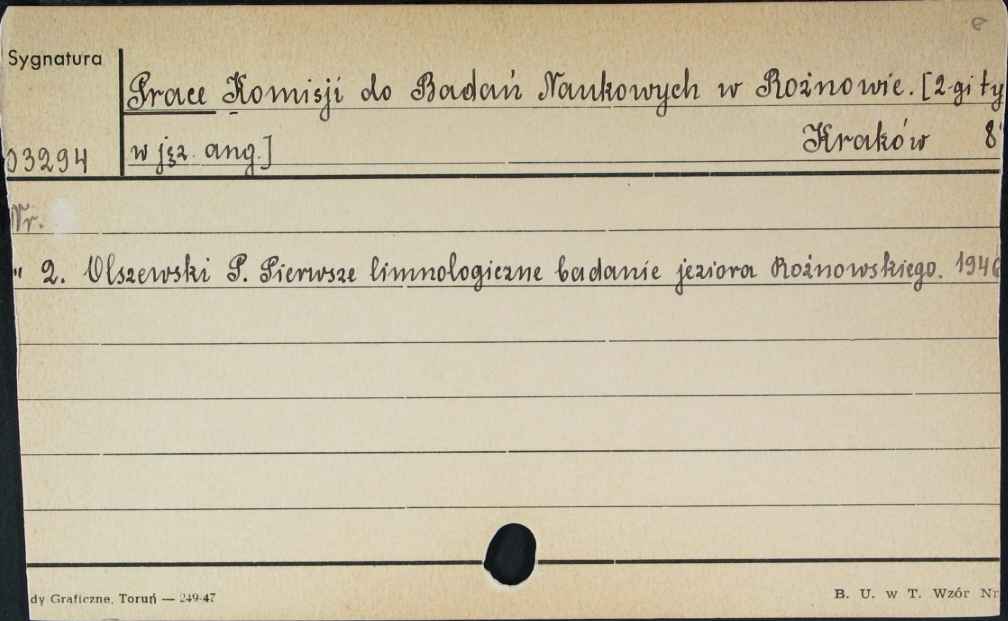 Sygnatura
Prace Komisji do Badań Naukowych w Rożnowie. [2-gi ty
03294 w jęz. ang.] Kraków 8°
Nr.
" 2. Olszewski P. Pierwsze limnologiczne badanie jeziora Rożnowskiego. 1946
dy Graficzne, Toruń — 249-47
B. U. w T. Wzór Nr